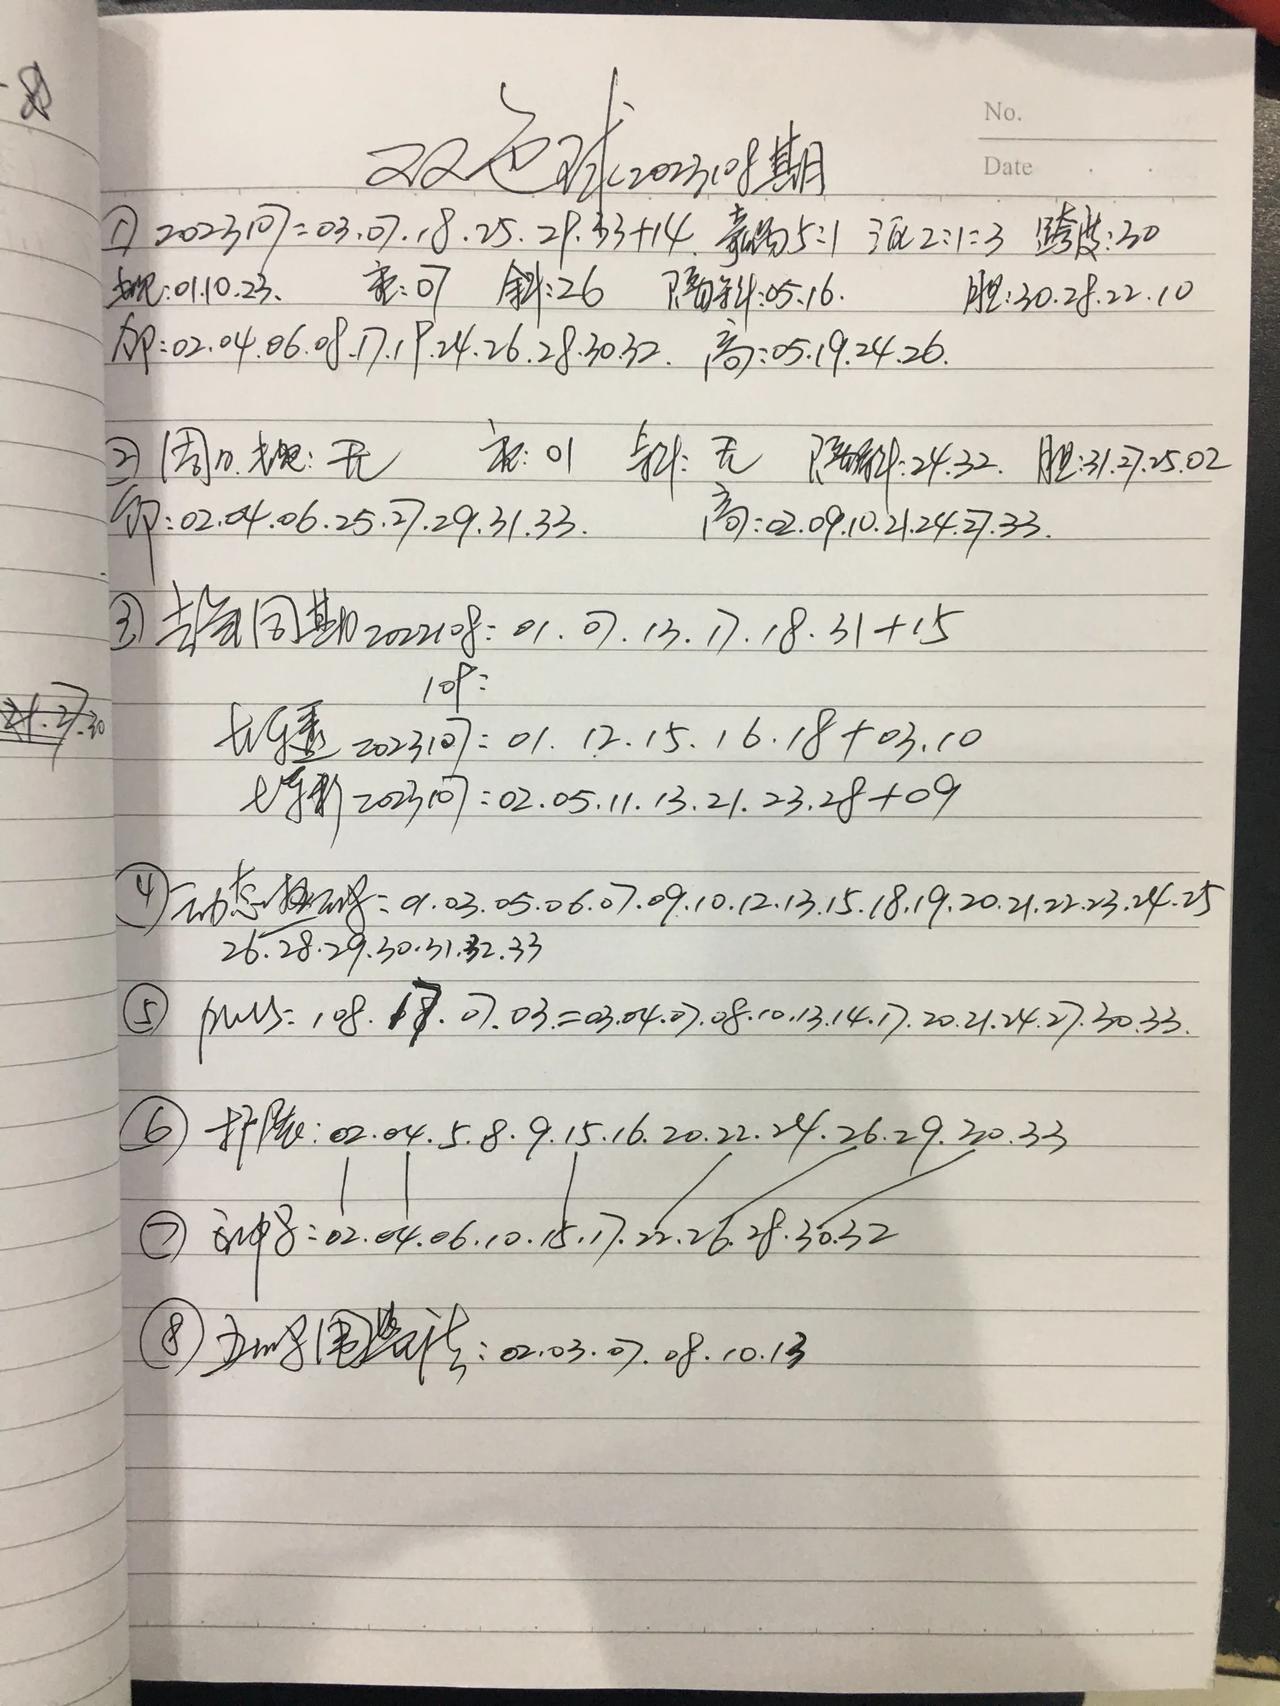 No.
Date
双色球2023108期
① 2023107=03.07.18.25.29.33+14 奇偶5:1 2:1:3 跨度:30
01.10.23. 重:07 斜:26 隔斜:05.16. 胆:30.28.22.10
02.04.06.08.17.19.24.26.28.30.32. 高:05.19.24.26.
② 周 无 重:01 斜:无 隔斜:24.32. 胆:31.27.25.02
02.04.06.25.27.29.31.33. 高:02.09.10.21.24.27.33.
③ 去年同期2022108:01.07.13.17.18.31+15
109:
大乐透2023107:01.12.15.16.18+03.10
七乐彩2023107:02.05.11.13.21.23.28+09
21.27.30
④ 动态 号:01.03.05.06.07.09.10.12.13.15.18.19.20.21.22.23.24.25
26.28.29.30.31.32.33
⑤ 108.17.07.03=03.04.07.08.10.13.14.17.20.21.24.27.30.33.
⑥ 02.04.5.8.9.15.16.20.22.24.26.29.30.33
⑦ 02.04.06.10.15.17.22.26.28.30.32
⑧ 五 号围 法:02.03.07.08.10.13